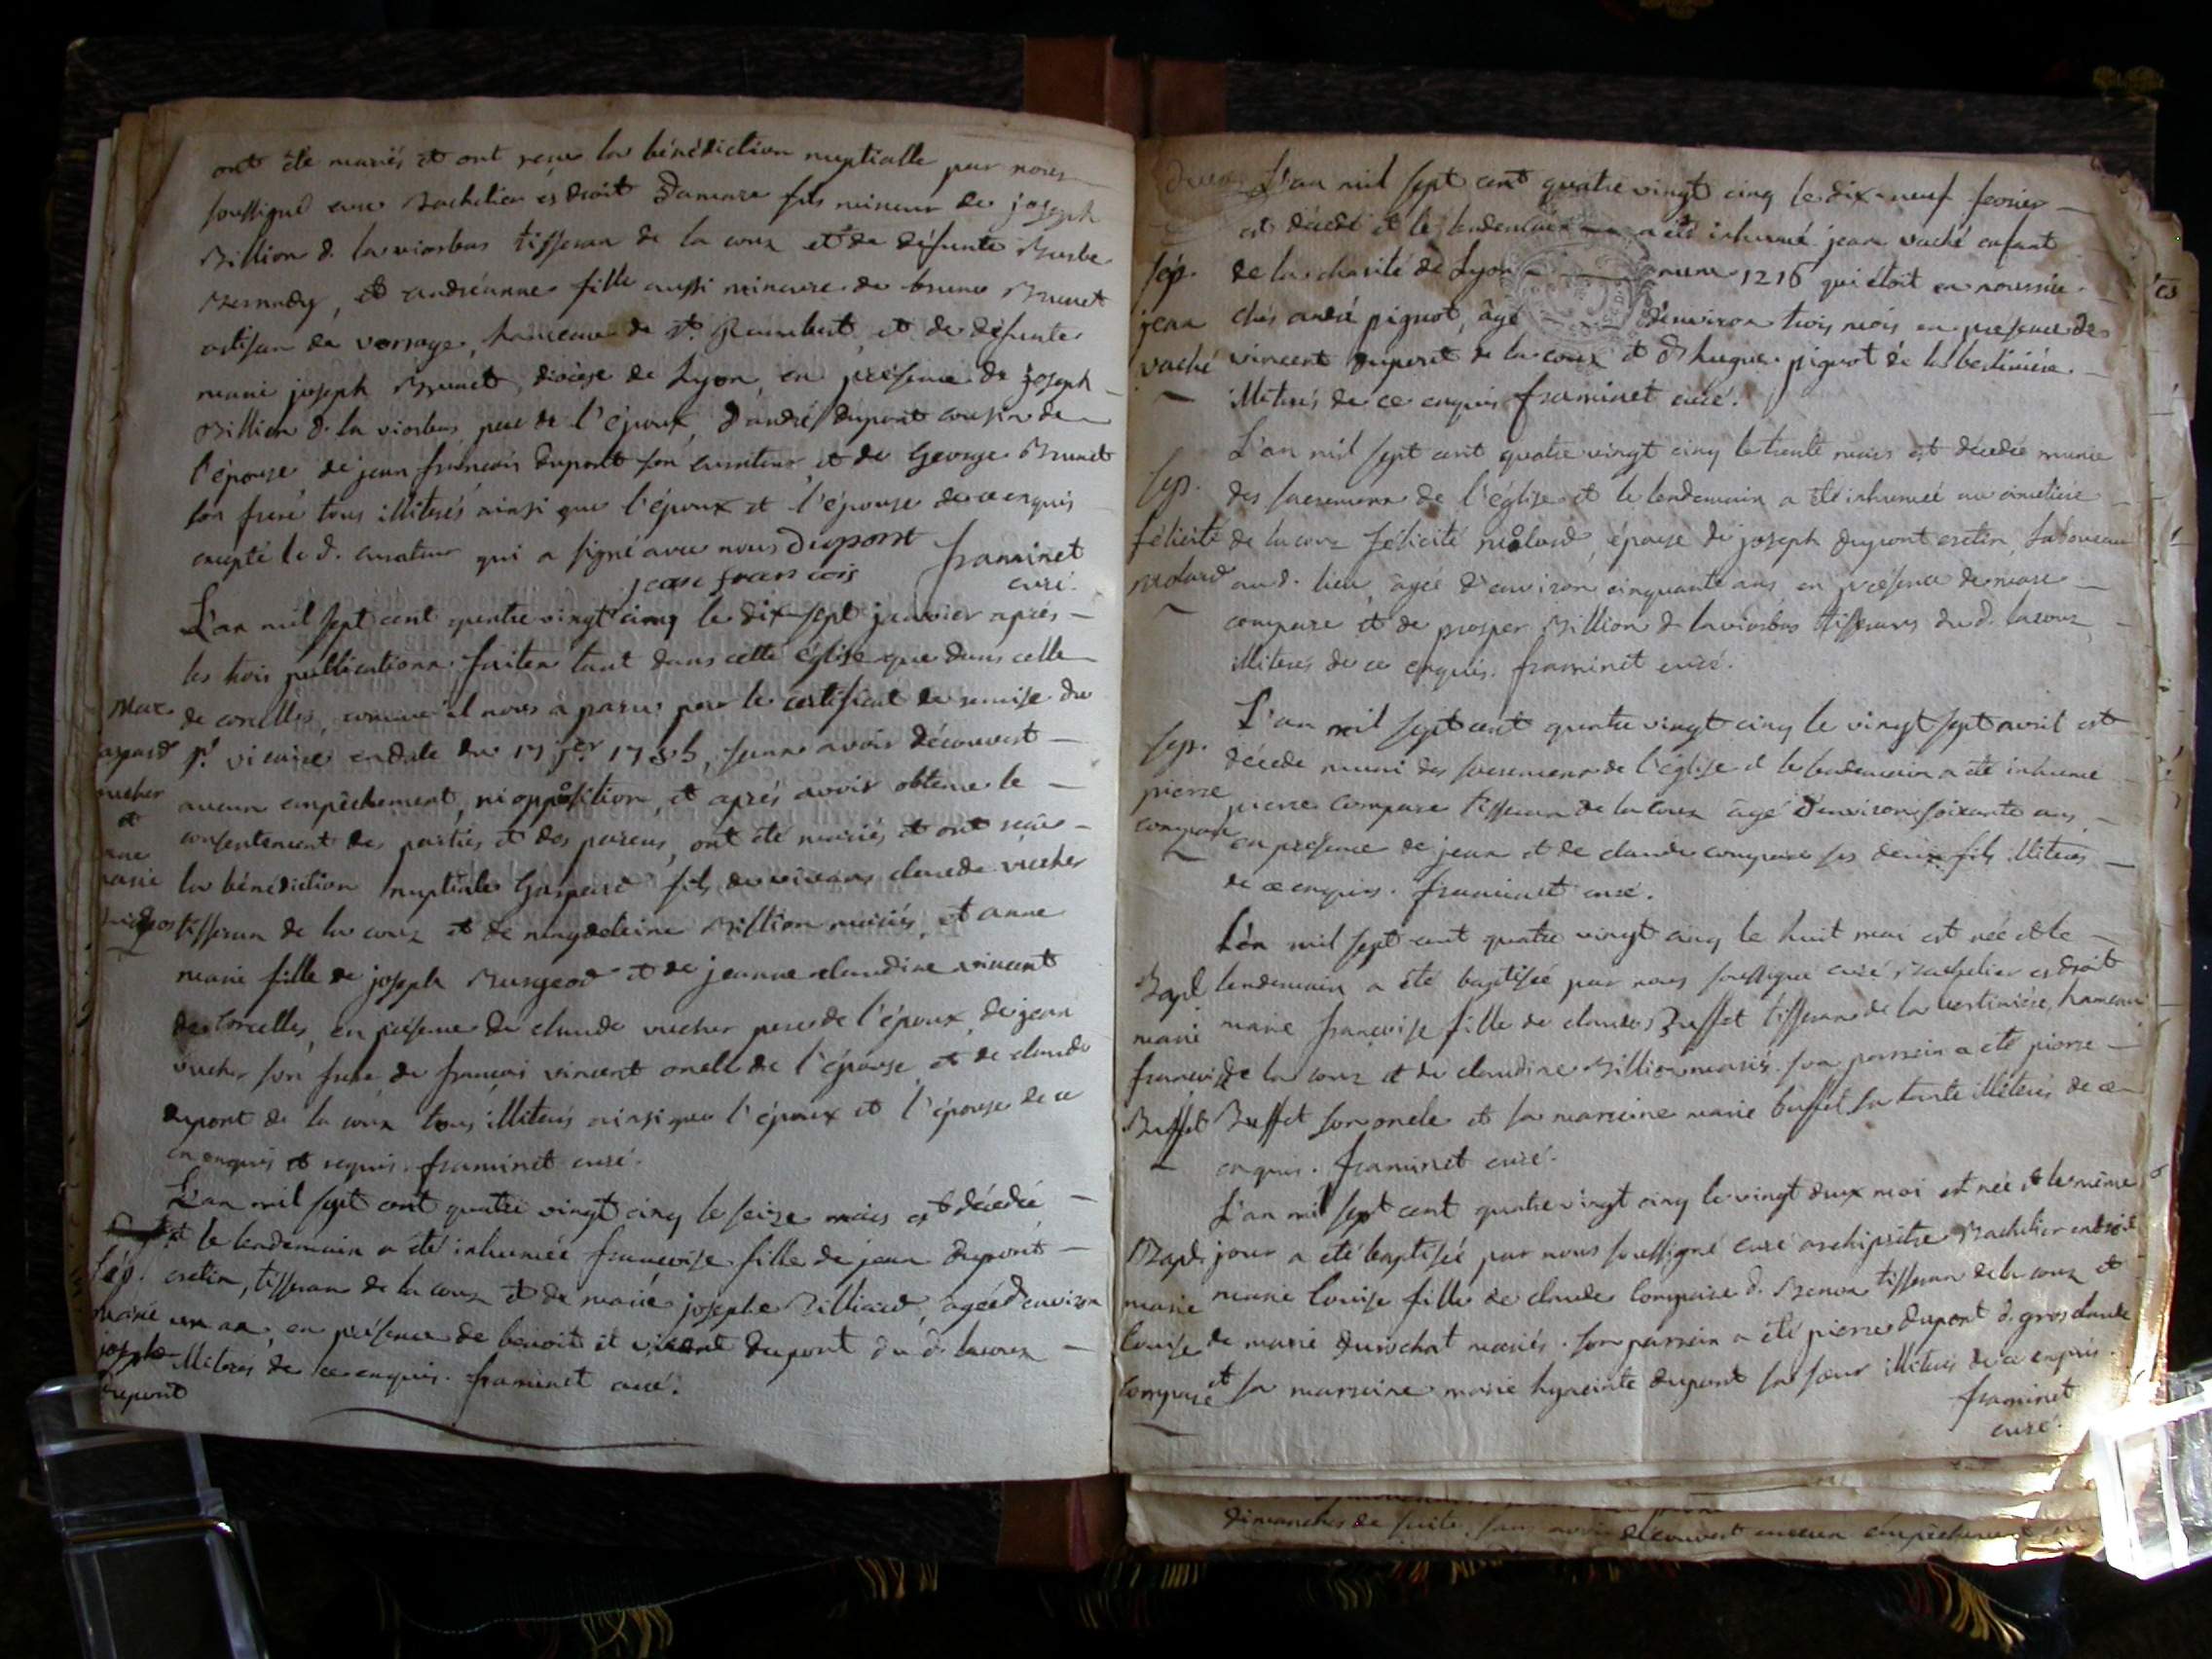 ont été mariés et ont reçu la bénédiction nuptialle par nous
soussigné curé Bachelier es droit fils mineur de joseph
Billion d. tisseran de la coux et de défunte Barbe
et andréanne fille aussi mineure de bruno Brunet
artisan de hameau de st. Rambert, et de défunte
marie joseph Brunet, diocèse de Lyon, en présence de joseph
Billion d. pere de l'époux, d'andré dupont cousin de
l'épouse de jean françois dupont son curateur et de George Brunet
son frere tous illiterés ainsi que l'époux et l'épouse de ce enquis
excepté le d. curateur qui a signé avec nous Dupont
jean francois framinet
curé.
L'an mil sept cent quatre vingt cinq le dix sept janvier après
les trois publications faites tant dans cette église que dans celle
Mar. de corcelles, comme il nous à paru par le certificat de remise du
gaspard sr. vicaire en date du 17 jer 1785, sans avoir découvert
vucher aucun empêchement, ni opposition, et après avoir obtenu le
et consentement des parties et des parens, ont été mariés et ont reçu
anne
marie la bénédiction nuptiale Gaspard fils de vivans claude vucher
tisseran de la coux et de magdeleine Billion mariés, et anne
marie fille de joseph et de jeanne claudine vincent
de Corcelles, en présence de claude vucher pere de l'époux, de jean
vucher son frere de françois vincent oncle de l'épouse, et de claude
dupont de la coux tous illiterés ainsi que l'époux et l'épouse de ce
enquis et requis. framinet curé.
L'an mil sept cent quatre vingt cinq le seize mars est décédée
et le lendemain a été inhumée françoise fille de jean dupont
Sép. cretin, tisseran de la coux et de marie josephe Billiard, agée d'environ
marie un an, en présence de benoit et vincent dupont du d. lacoux
josephe illiterés de ce enquis. framinet curé.
dupont
deux L'an mil sept cent quatre vingt cinq le dix-neuf fevrier
est décédé et le lendemain a été inhumé jean vaché enfant
Sép. de la charité de Lyon 1216 qui étoit en nourrice
jean chés andré pignot, âgé d'environ trois mois en présence de
vaché vincent dupont de la coux et d'hugue pignot de la bertinière
illiterés de ce enquis framinet curé.
L'an mil sept cent quatre vingt cinq le trente mars est décédée munie
Sép. des sacremens de l'église et le lendemain a été inhumée au cimetière
félicité de lacoux félicité molard, épouse de joseph dupont cretin, laboureur
molard au d. lieu, agée d'environ cinquante ans, en présence de marc
compare et de prosper Billion d. tisserans du d. lacoux
illiterés de ce enquis. framinet curé.
L'an mil sept cent quatre vingt cinq le vingt sept avril est
Sép. décédé muni des sacremens de l'église et le lendemain a été inhumé
pierre pierre compare tisseran de la coux âgé d'environ soixante ans
compare en présence de jean et de claude compare ses deux fils illiterés
de ce enquis. framinet curé.
L'an mil sept cent quatre vingt cinq le huit mai est née et le
Bapt. lendemain a été baptisée par nous soussigné curé Bachelier es droit
marie marie françoise fille de claude Buffet tisseran de la bertinière, hameau
françoise de la coux et de claudine Billion mariés. son parrein a été pierre
Buffet Buffet son oncle et sa marreine marie buffet sa tante illiterés de ce
enquis. framinet curé.
L'an mil sept cent quatre vingt cinq le vingt deux mai est née et le même
Bapt. jour a été baptisée par nous soussigné curé archiprêtre Bachelier en droit
marie marie Louise fille de claude Compare d. Benoit tisseran de la coux et
louise de marie durochat mariés. son parrein a été pierre dupont d. gros claude
compare et sa marreine marie hyacinte dupont sa sœur illiterés de ce enquis.
framinet
curé.
dimanches de suite, sans avoir découvert aucun empêchement